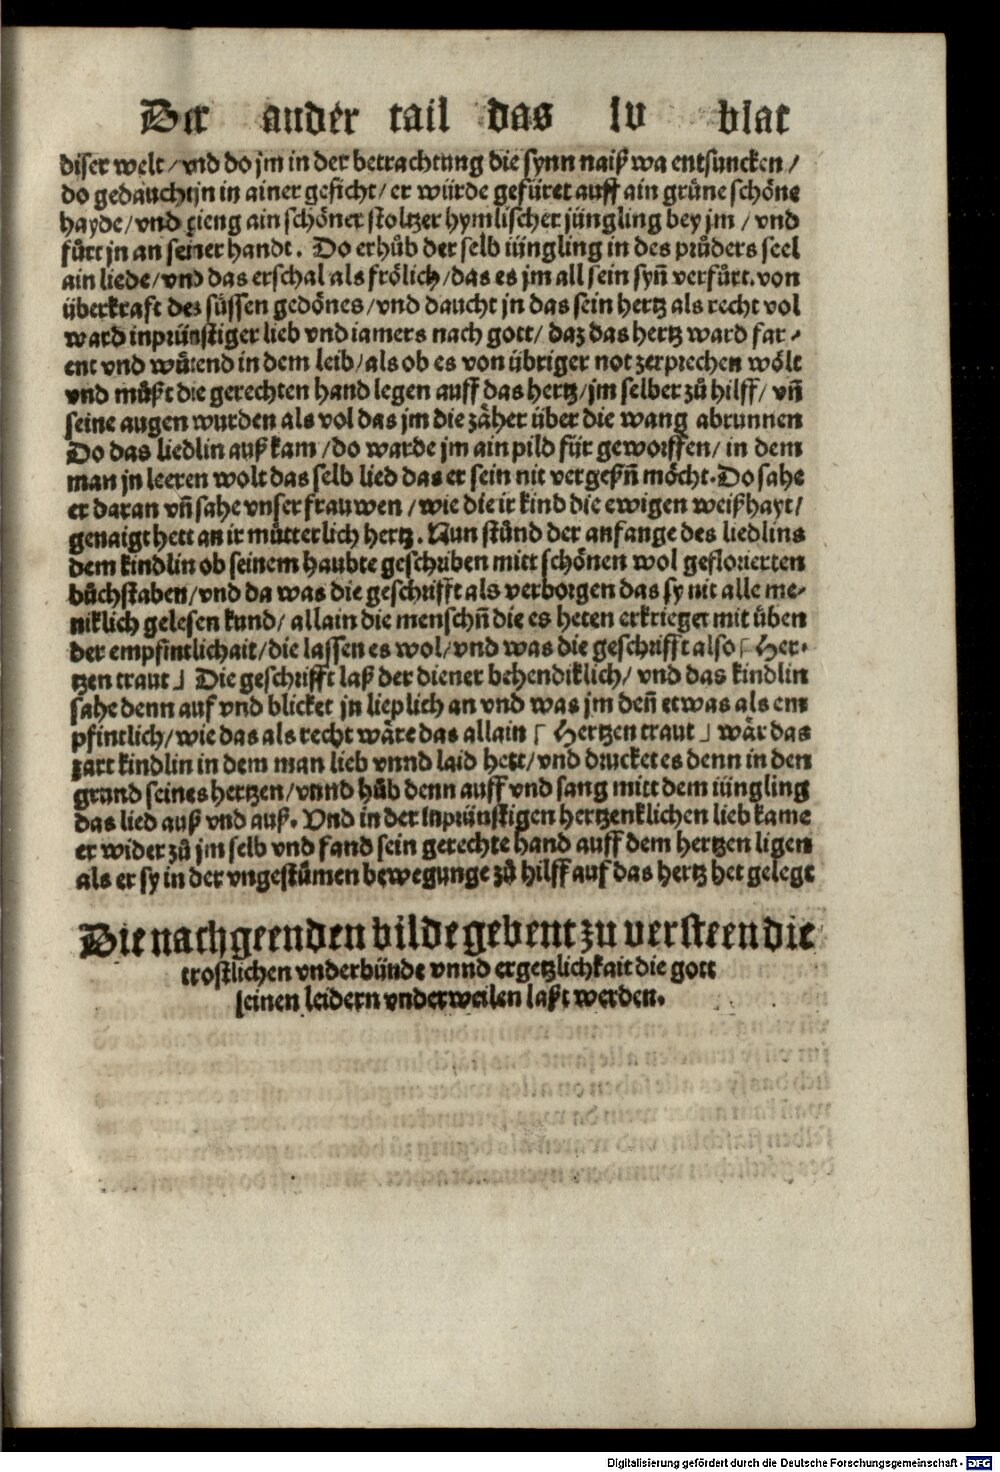 Der ander tail das lv blat
diser welt/vnd do jm in der betrachtung die synn naiß wa entsuncken/
do gedaucht jn in ainer gesicht/er würde gefüret auff ain grüne schöne
hayde/vnd gieng ain schöner stoltzer hymlischer jüngling bey jm/vnd
fůrt jn an seiner handt. Do erhůb der selb iüngling in des průders seel
ain liede/vnd das erschal als frölich/das es jm all sein syn̄ verfůrt.von
überkraft des süssen gedönes/vnd daucht jn das sein hertz als recht vol
ward inprünstiger lieb vnd iamers nach gott/daz das hertz ward far-
ent vnd wůtend in dem leib/als ob es von übriger not zerprechen wölt
vnd můßt die gerechten hand legen auff das hertz/jm selber zů hilff/vn̄
seine augen wurden als vol das jm die zäher über die wang abrunnen
Do das liedlin auß kam/do warde jm ain pild für geworffen/in dem
man jn leeren wolt das selb lied das er sein nit vergeßn̄ möcht.Do sahe
er daran vn̄ sahe vnser frauwen/wie die ir kind die ewigen weißhayt/
genaigt hett an ir můtterlich hertz. Nun stůnd der anfange des liedlins
dem kindlin ob seinem haubte geschriben mitt schönen wol geflorierten
bůchstaben/vnd da was die geschrifft als verborgen das sy nit alle me-
niklich gelesen kund/allain die menschn̄ die es heten erkrieget mit üben
der empfintlichait/die lassen es wol/vnd was die geschrifft also ⌈ Her-
tzen traut ⌋ Die geschrifft laß der diener behendiklich/vnd das kindlin
sahe denn auf vnd blicket jn lieplich an vnd was jm den̄ etwas als em
pfintlich/wie das als recht wäre das allain ⌈ Hertzen traut ⌋ wär das
zart kindlin in dem man lieb vnnd laid hett/vnd drucket es denn in den
grund seines hertzen/vnnd hůb denn auff vnd sang mitt dem iüngling
das lied auß vnd auß. Vnd in der inprünstigen hertzenklichen lieb kame
er wider zů jm selb vnd fand sein gerechte hand auff dem hertzen ligen
als er sy in der vngestůmen bewegunge zů hilff auf das hertz het gelegt
Die nachgeenden bilde gebent zu versteen die
trostlichen vnderbünde vnnd ergetzlichkait die gott
seinen leidern vnderweilen laßt werden.
Digitalisierung gefördert durch die Deutsche Forschungsgemeinschaft - DFG